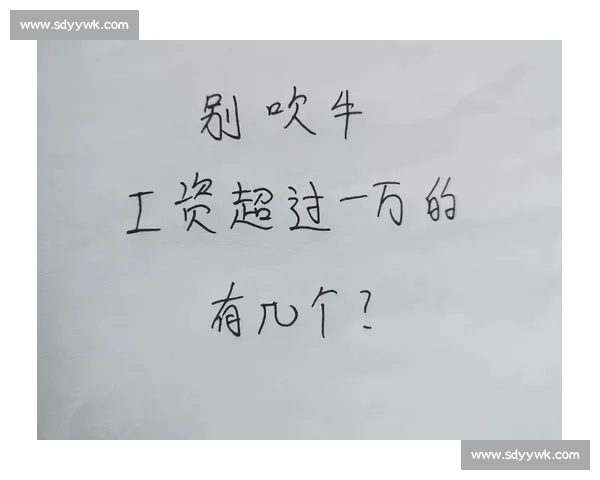 www.sdyywk.com
别吹牛
工资超过一万的
有几个?
www.sdyywk.com